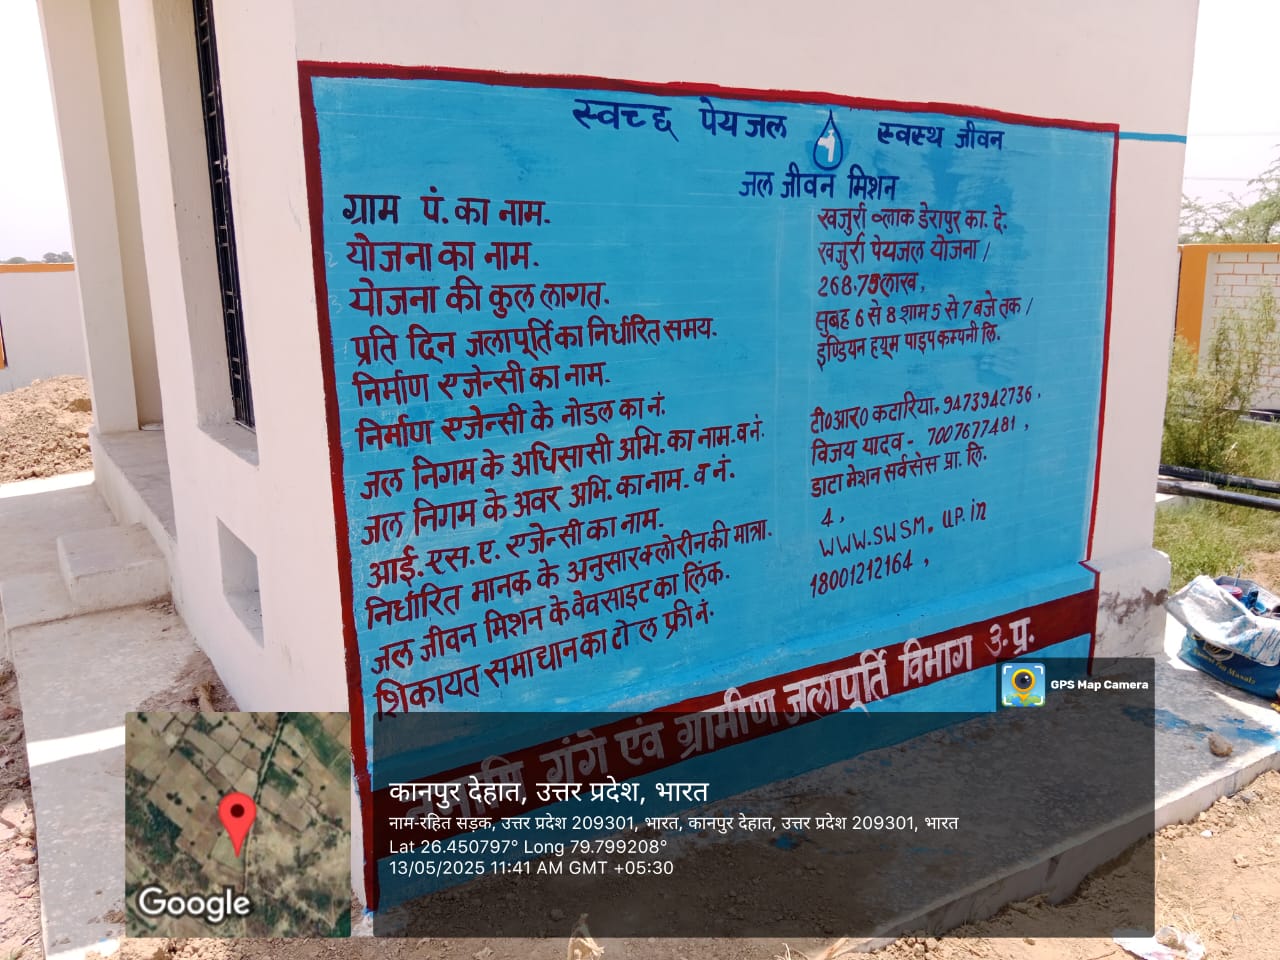 स्वच्छ पेयजल स्वस्थ जीवन
जल जीवन मिशन
ग्राम पं. का नाम. खजुर्री ब्लाक डेरापुर का. दे.
योजना का नाम. खजुर्री पेयजल योजना /
योजना की कुल लागत. 268.75लाख,
प्रति दिन जलापूर्ति का निर्धारित समय. सुबह 6 से 8 शाम 5 से 7 बजे तक /
निर्माण एजेन्सी का नाम. इण्डियन ह्यूम पाइप कम्पनी लि.
निर्माण एजेन्सी के नोडल का नं.
जल निगम के अधिसासी अभि. का नाम. व नं. टी०आर० कटारिया, 9473942736,
जल निगम के अवर अभि. का नाम. व नं. विजय यादव - 7007677481,
आई. एस. ए. एजेन्सी का नाम. डाटा मेशन सर्वसेस प्रा. लि.
निर्धारित मानक के अनुसार क्लोरीन की मात्रा. 4,
जल जीवन मिशन के वेवसाइट का लिंक. WWW.SWSM.UP.in
शिकायत समाधान का टोल फ्री नं. 18001212164,
नमामि गंगे एंव ग्रामीण जलापूर्ति विभाग उ.प्र.
GPS Map Camera
कानपुर देहात, उत्तर प्रदेश, भारत
नाम-रहित सड़क, उत्तर प्रदेश 209301, भारत, कानपुर देहात, उत्तर प्रदेश 209301, भारत
Lat 26.450797° Long 79.799208°
13/05/2025 11:41 AM GMT +05:30
Google